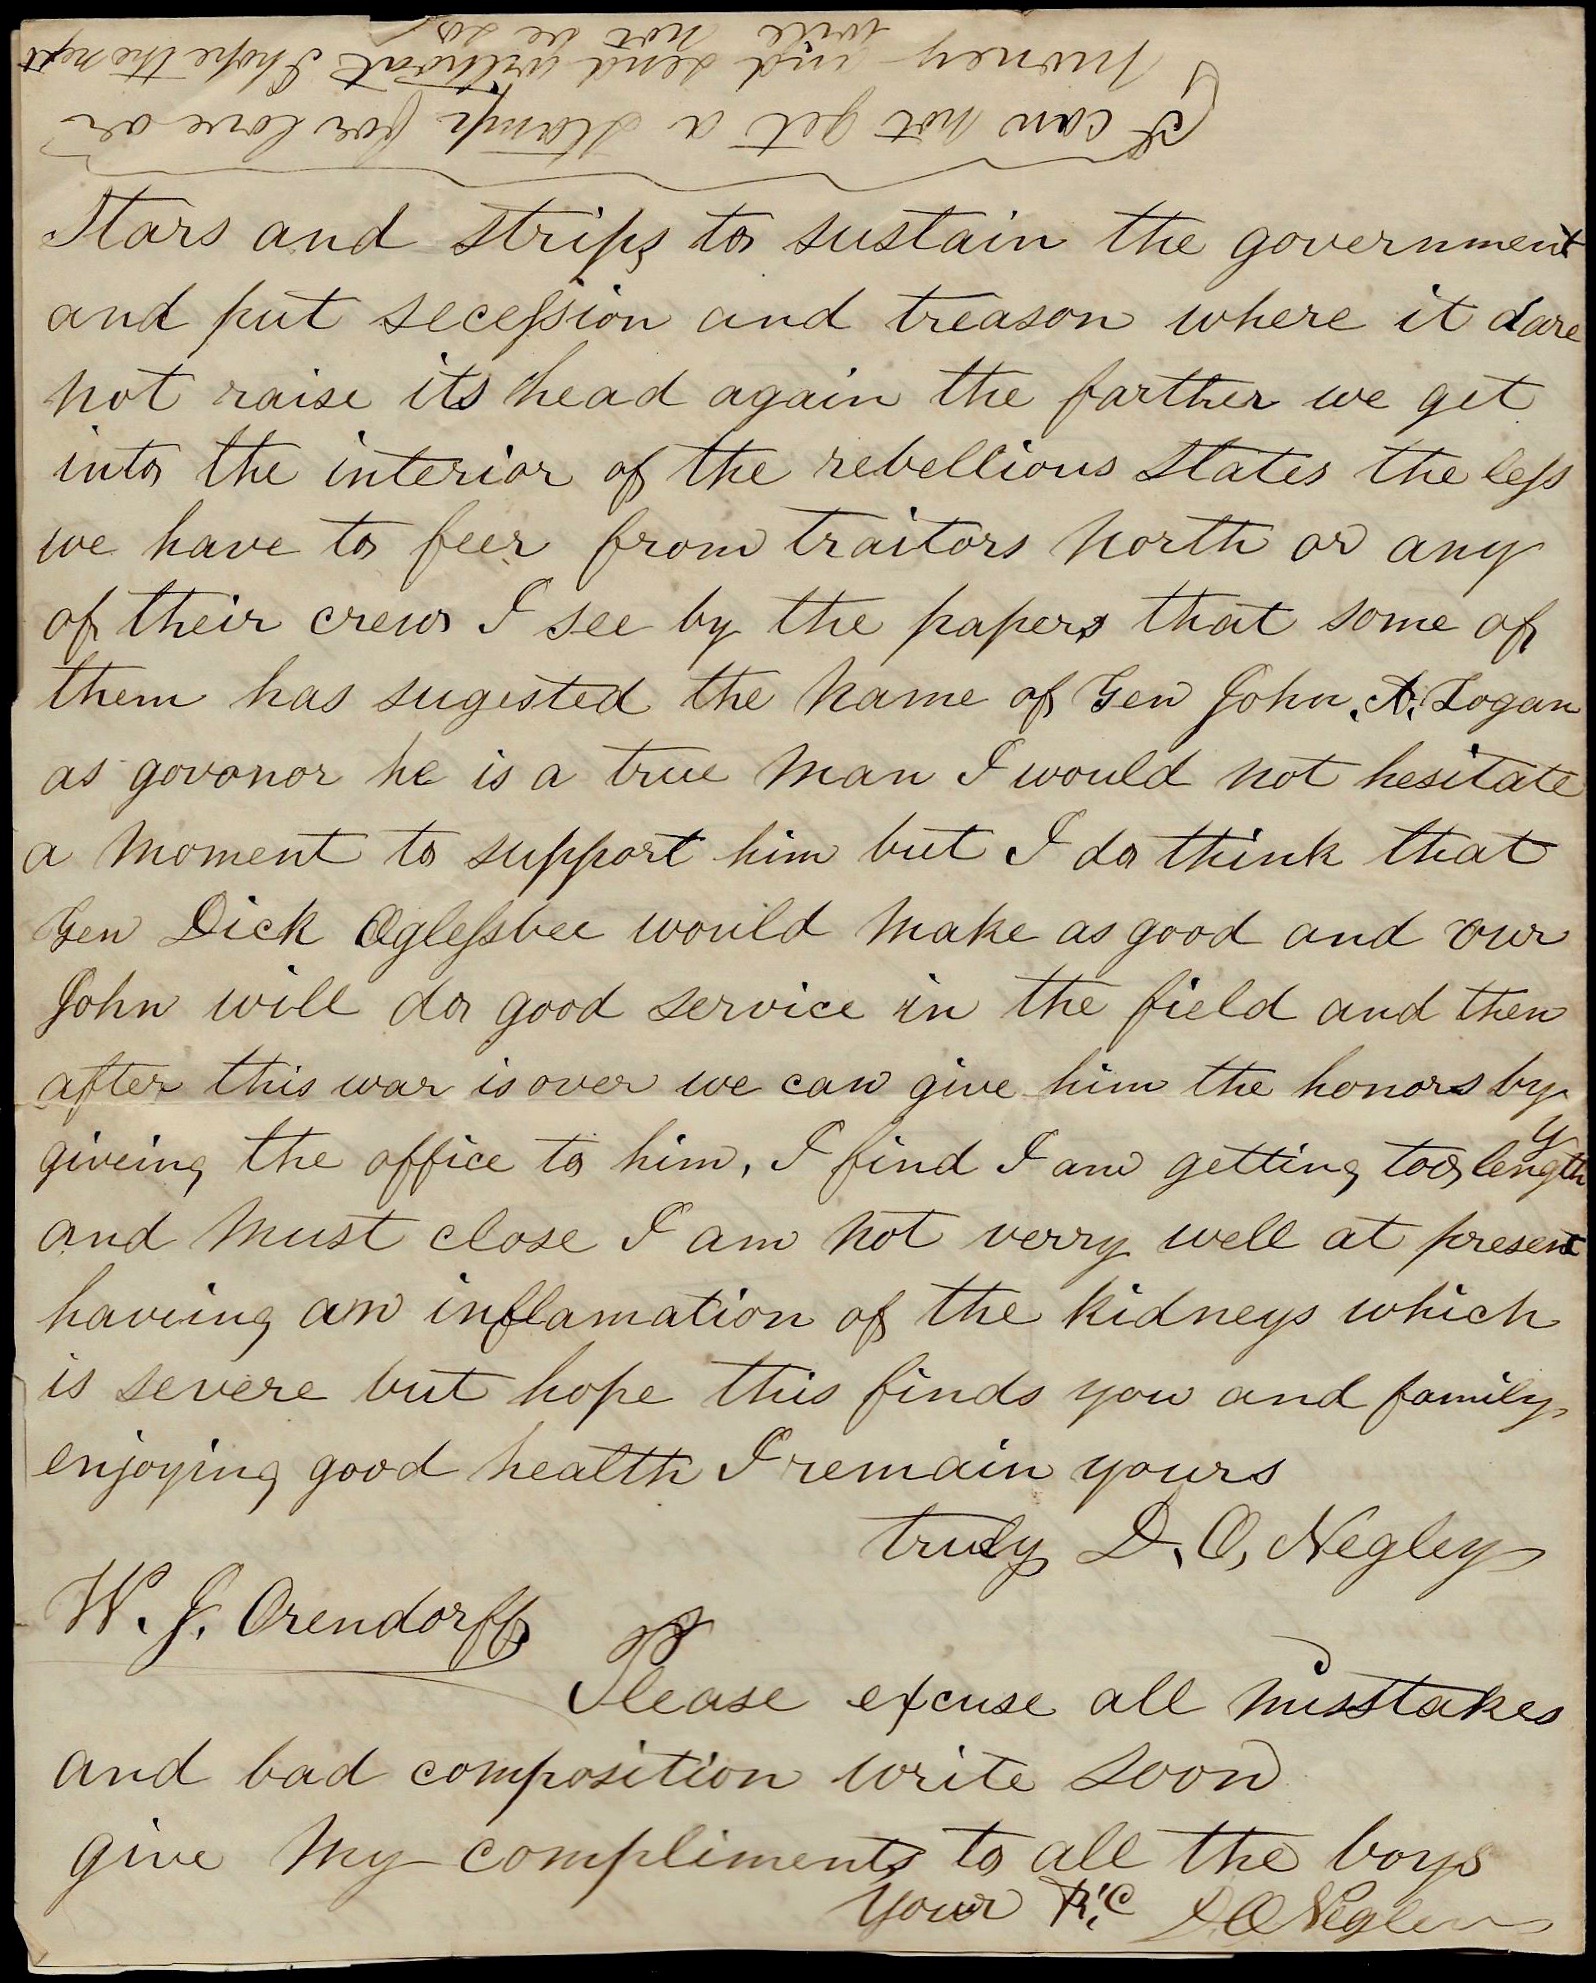 I can not get a stamp for love or
money and send without I hope the next
will not be so
Stars and strips to sustain the government
and put secession and treason where it dare
not raise its head again the farther we get
into the interior of the rebellious States the less
we have to feer from traitors North or any
of their crew I see by the papers that some of
them has sugested the name of Gen John. A. Logan
as govonor he is a true man I would not hesitate
a moment to support him but I do think that
Gen Dick Oglessbee would make as good and our
John will do good service in the field and then
after this war is over we can give him the honors by
giveing the office to him. I find I am getting too lengthy
and must close I am not verry well at present
haveing an inflamation of the kidneys which
is severe but hope this finds you and family
enjoying good health I remain yours
truly D. O. Negley
W. J. Orendorff
Please excuse all misstakes
and bad composition write soon
give my compliments to all the boys
Your R.C D O Negley